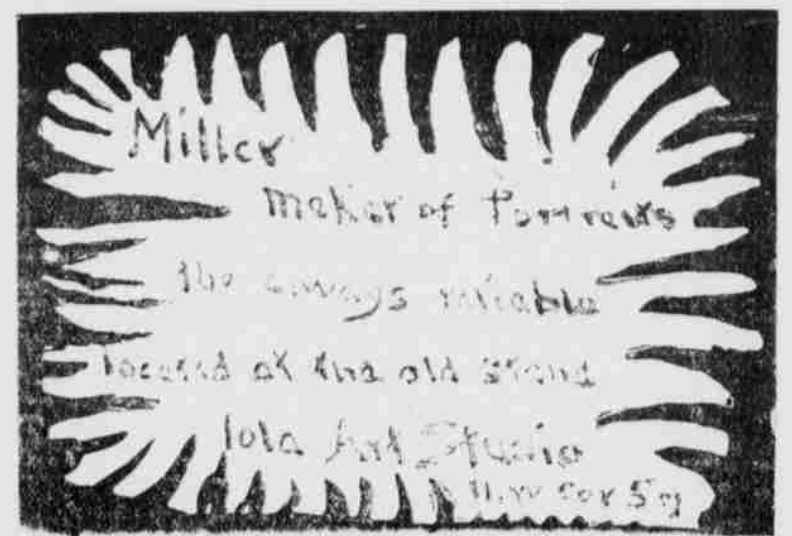 Miller
maker of Portraits
the always reliable
located at the old stand
Iola Art Studio
cor Sq